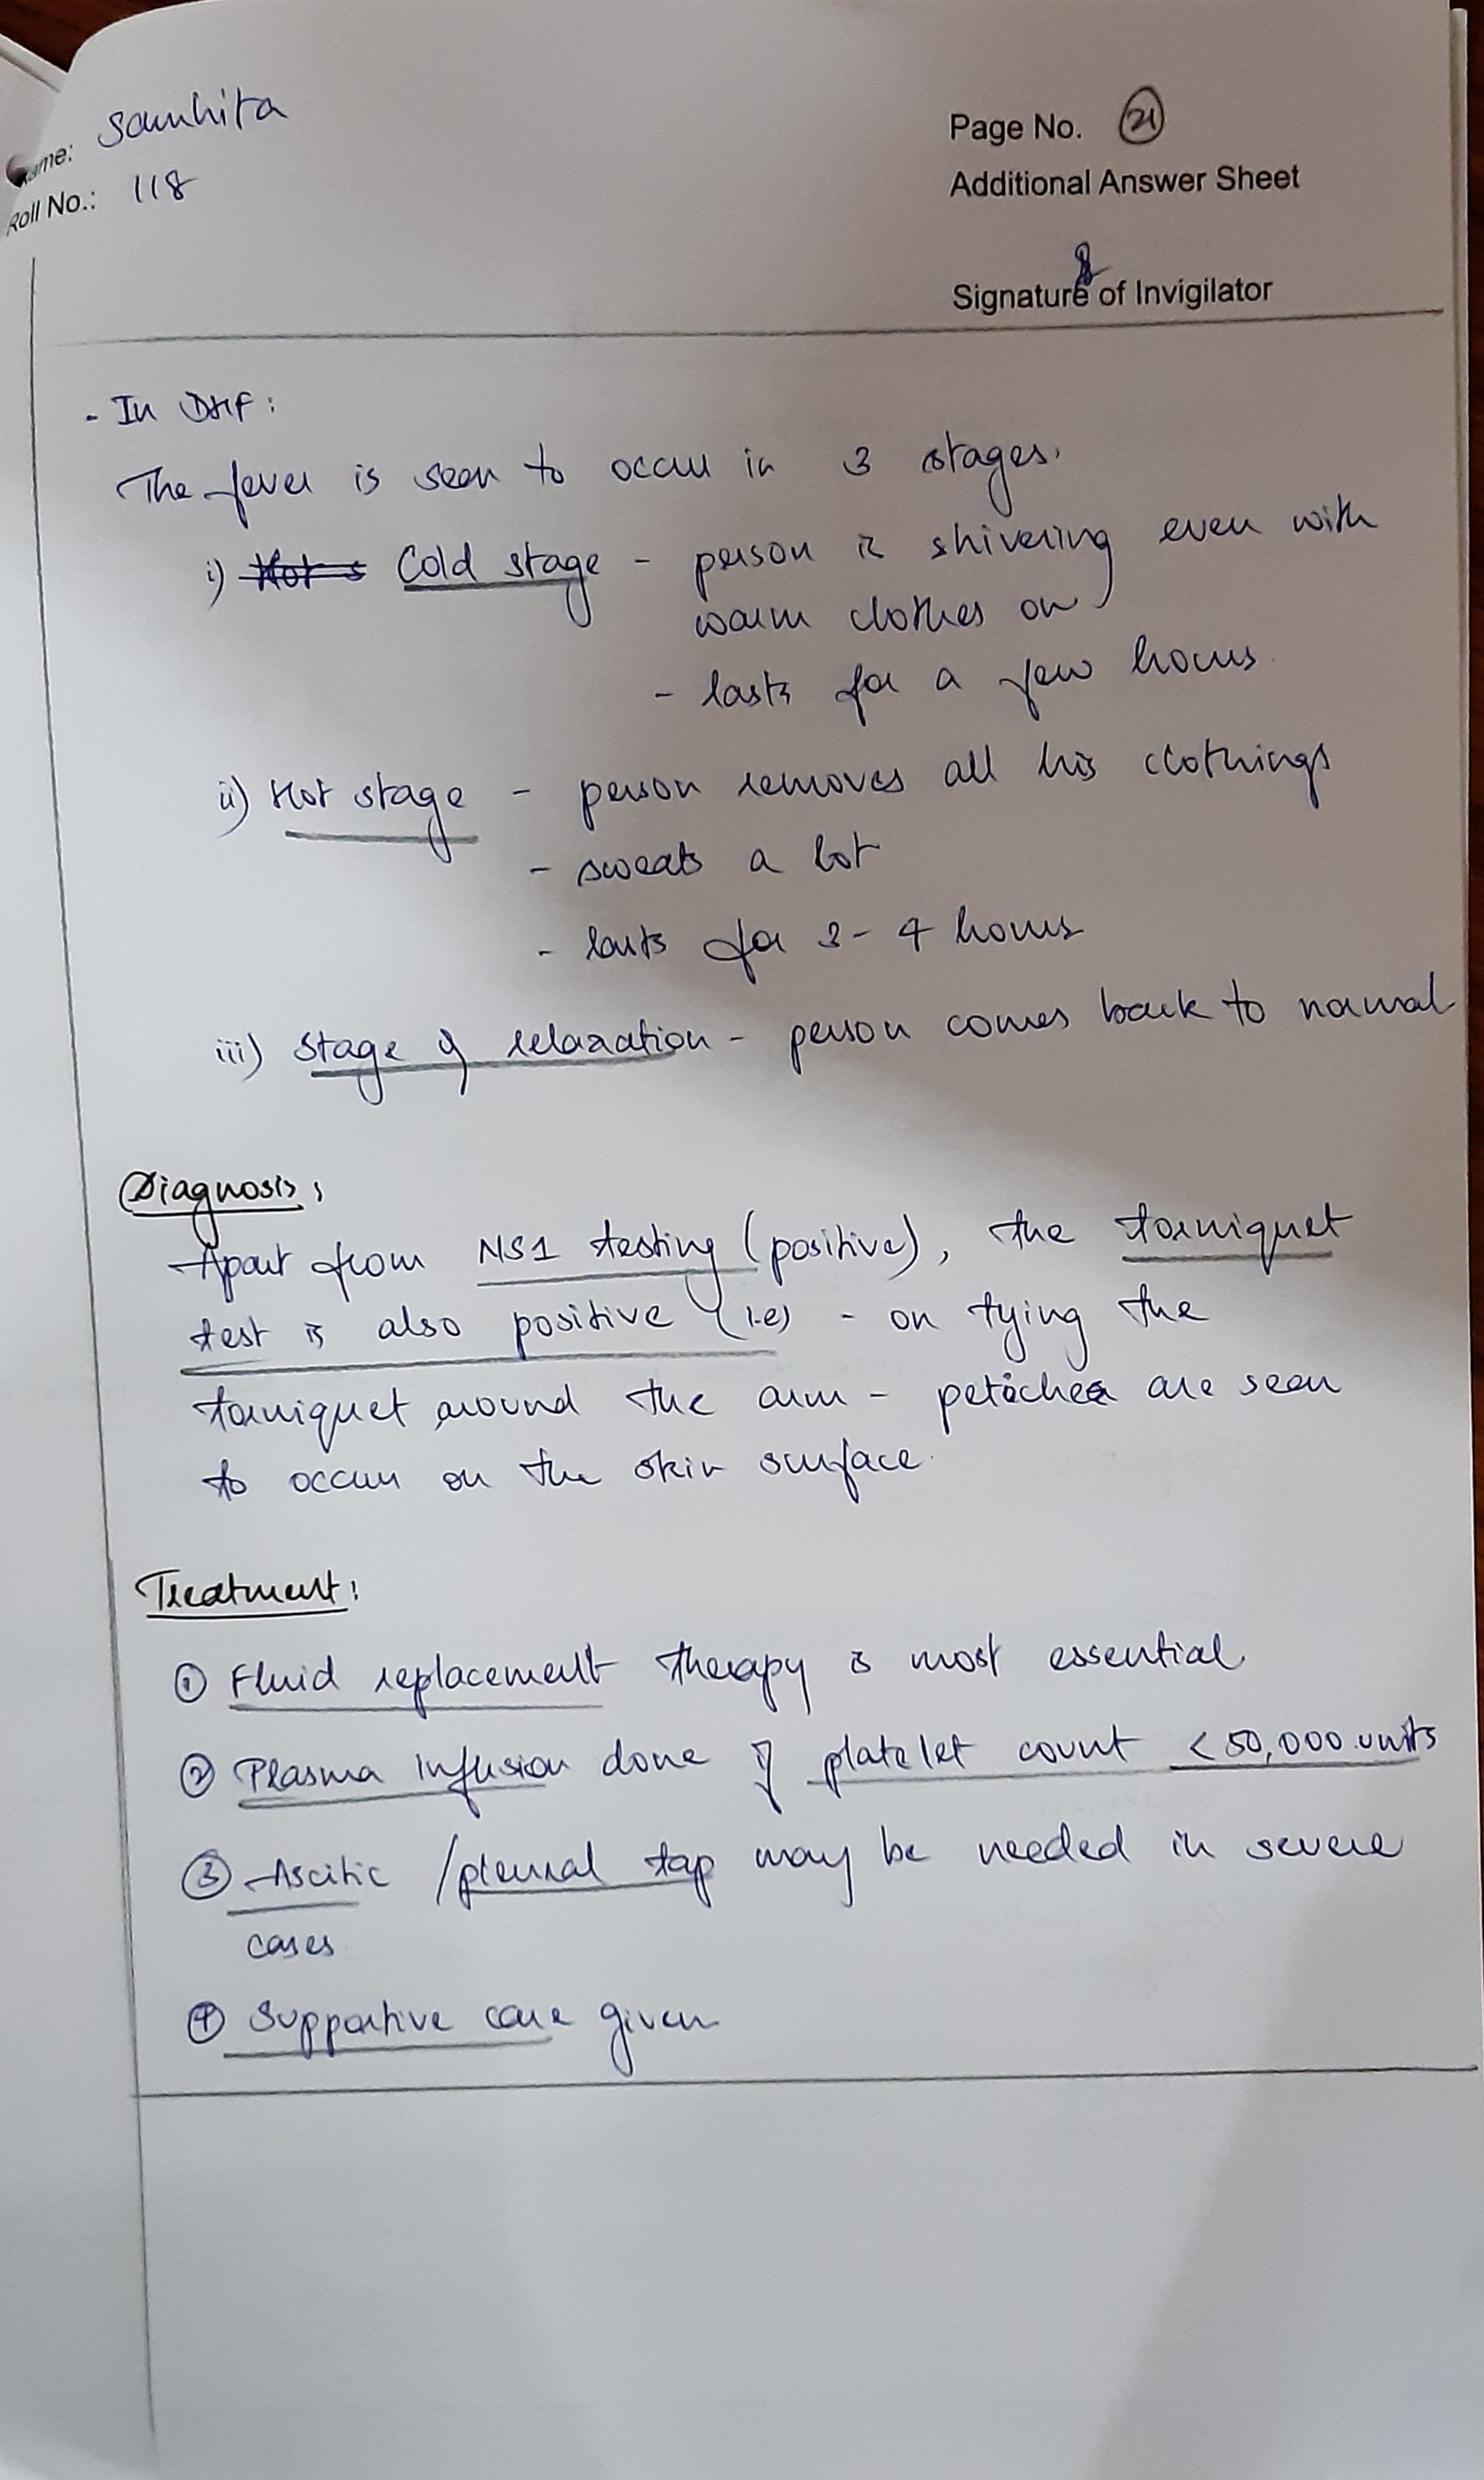 Name: Samhita
Roll No.: 118
Page No. 21
Additional Answer Sheet
Signature of Invigilator
- In DHF:
The fever is seen to occur in 3 stages.
i) Hot s Cold stage - person is shivering even with
warm clothes on
- lasts for a few hours.
ii) Hot stage - person removes all his clothings
- sweats a lot
- lasts for 3-4 hours
iii) Stage of relaxation - person comes back to normal
Diagnosis:
Apart from NS1 testing (positive), the torniquet
test is also positive (i.e) - on tying the
torniquet around the arm - petechea are seen
to occur on the skin surface.
Treatment:
① Fluid replacement therapy is most essential
② Plasma infusion done if platelet count < 50,000 units
③ Ascitic / pleural tap may be needed in severe
cases
④ Supportive care given